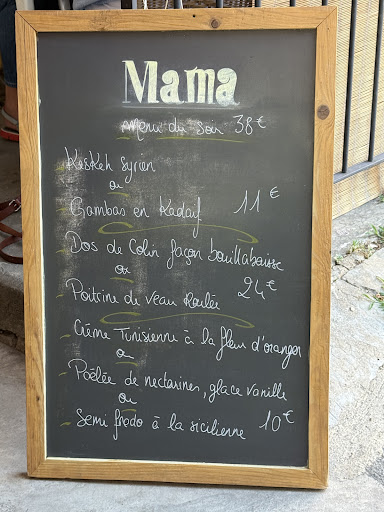 Mama
Menu du soir 38€
KisKeh Syrien
ou
Gambas en Kadaïf 11€
Dos de Colin façon bouillabaisse
ou 24€
Poitrine de veau Roulée
Crème Tunisienne à la fleur d'oranger
ou
Poêlée de nectarines, glace vanille
ou
Semi fredo à la sicilienne 10€